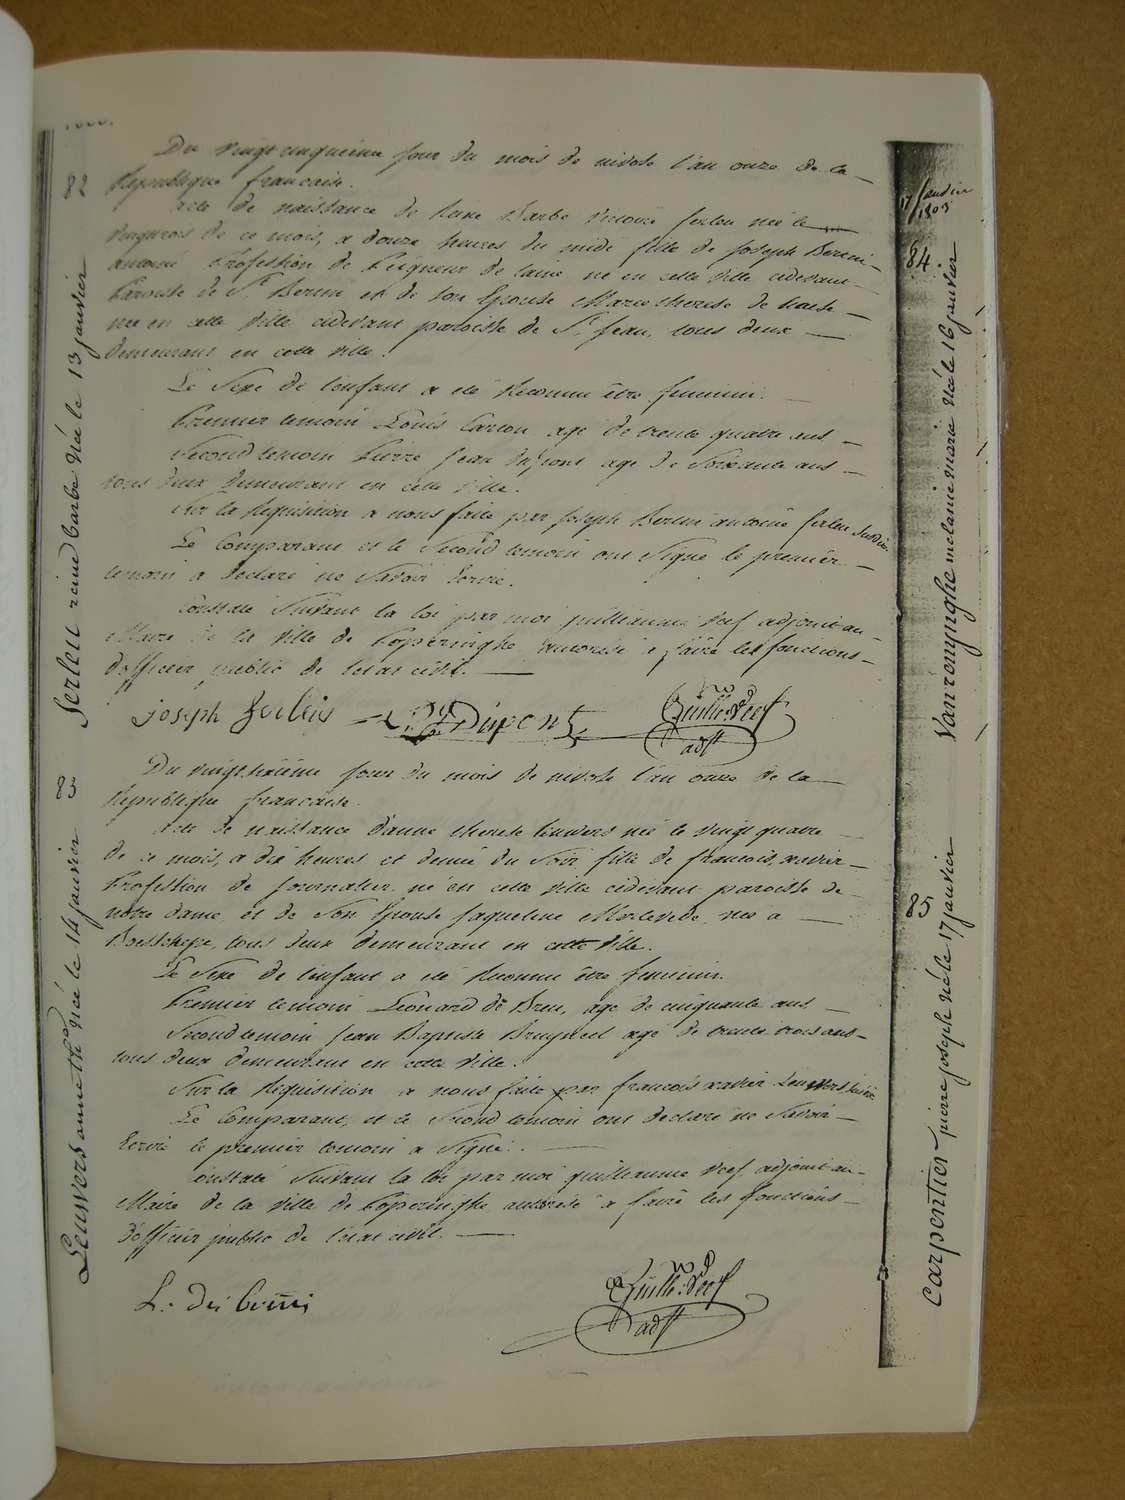 82
Serleu reine barbe Née le 13 janvier
Du vingt cinquieme jour du mois de nivose l'an onze de la
Republique francaise.
acte de naissance de Reine Barbe Serleu née le
de ce mois, a douze heures du midi fille de Joseph Bertin
antoine Profession de Peigneur de laine, né en cette ville cidevant
Paroisse de St Bertin et de son Epouse Marie therese de
née en cette ville cidevant paroisse de St Jean, tous deux
demeurant en cette ville.
Le Sexe de l'enfant a été Reconnu être feminin.
Premier temoin Louis Carton agé de trente quatre ans
Second temoin Pierre Jean Dupont agé de Soixante ans
tous deux demeurant en cette ville.
Sur la Requisition a nous faite par Joseph Bertin antoine Serleu Susdit
Le Comparant et le Second temoin ont Signé le premier
temoin a Declaré ne Savoir Ecrire.
Constaté Suivant la loi par moi guilleaume Veef adjoint au
Maire de la Ville de Poperinghe autorisé a faire les fonctions
d'officier public de l'etat civil.
Joseph Dupont Guille. Veef
adjt
83
Leuwers anne thse Née le 14 janvier
Du vingt sixième jour du mois de nivose l'an onze de la
Republique francaise.
Acte de naissance d'anne therese Leuwers née le vingt quatre
de ce mois, a dix heures et demie du Soir fille de francois xavier
Profession de Journalier né en cette ville cidevant paroisse de
notre dame et de Son Epouse Jaqueline née a
Boesschepe, tous deux demeurant en cette Ville.
Le Sexe de l'enfant a été Reconnu être feminin.
Premier temoin Leonard de agé de cinquante ans
Second temoin Jean Baptiste agé de trente trois ans
tous deux demeurant en cette ville.
Sur la Requisition a nous faite par francois xavier Leuwers Susdit
Le Comparant, et le Second temoin ont declaré ne Savoir
Ecrire le premier temoin a Signé.
Constaté Suivant la loi par moi guilleaume Veef adjoint au
Maire de la Ville de Poperinghe autorisé a faire les fonctions
d'officier public de l'etat civil.
Guille. Veef
adjt
17 janvier
1803
84
Vanronynghe melanie marie Née le 16 janvier
85
Carpentier pierre joseph Né le 17 janvier